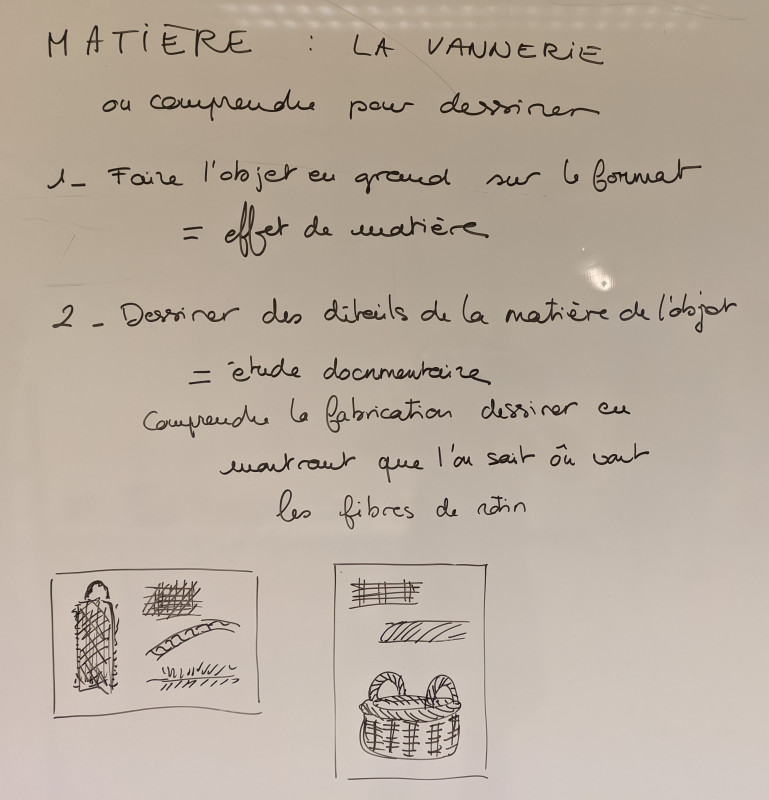 MATIÈRE : LA VANNERIE
ou comprendre pour dessiner
1_ Faire l'objet en grand sur le format
= effet de matière
2_ Dessiner des détails de la matière de l'objet
= étude documentaire
Comprendre la fabrication dessiner en
montrant que l'on sait où vont
les fibres de rotin